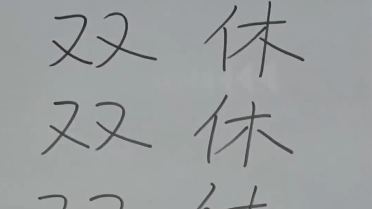 双休
双休